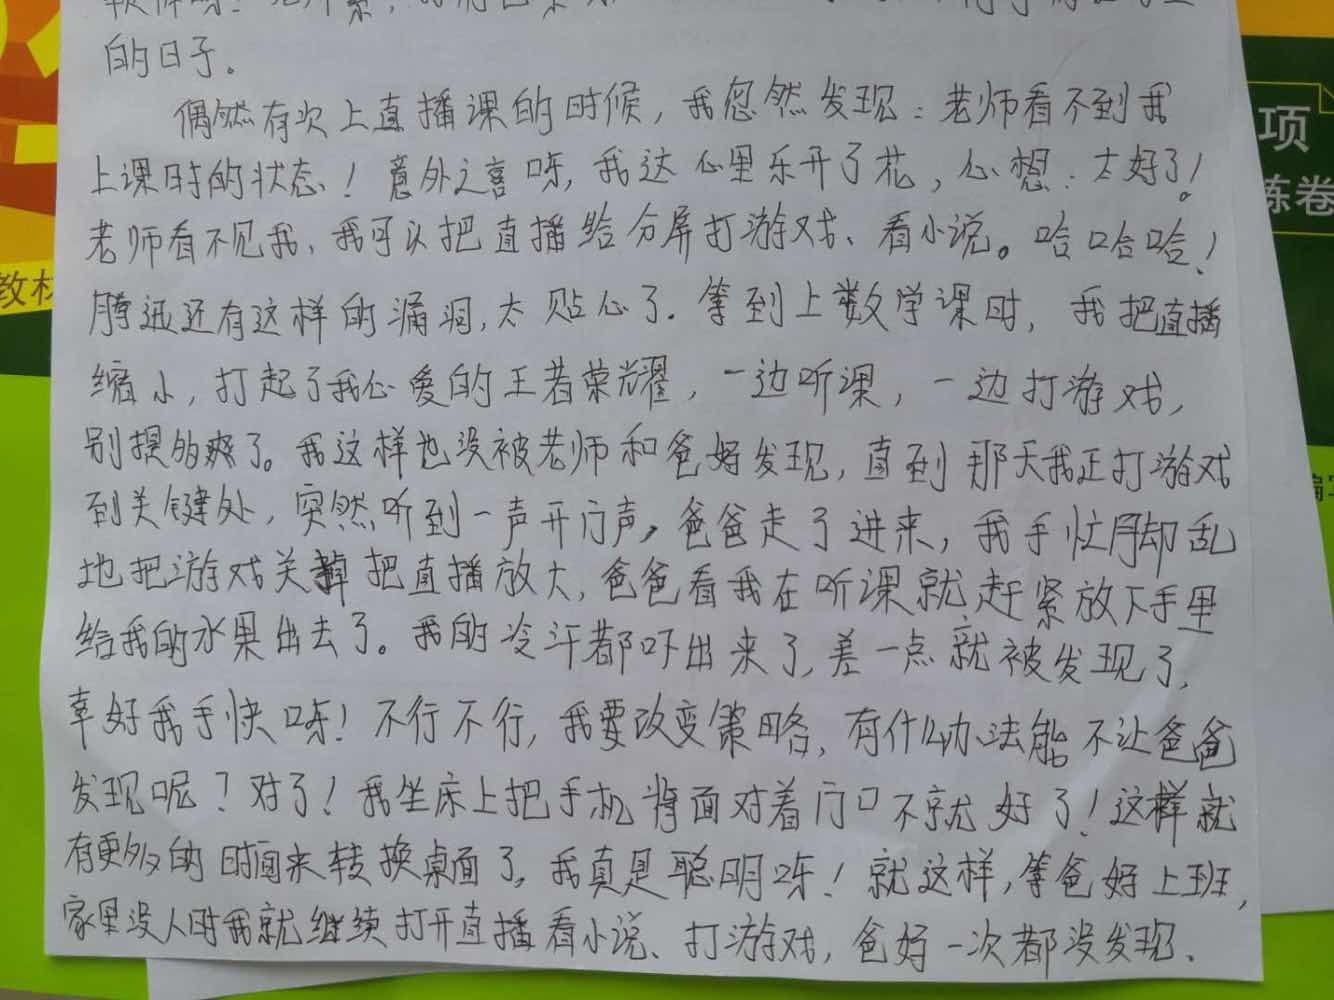 的日子。
偶然有次上直播课的时候，我忽然发现：老师看不到我
上课时的状态！意外之喜呀，我这心里乐开了花，心想：太好了！
老师看不见我，我可以把直播给分屏打游戏、看小说。哈哈哈！
腾迅还有这样的漏洞，太贴心了。等到上数学课时，我把直播
缩小，打起了我心爱的王者荣耀，一边听课，一边打游戏，
别提多爽了。我这样也没被老师和爸妈发现，直到那天我正打游戏
到关键处，突然听到一声开门声，爸爸走了进来，我手忙脚乱
地把游戏关掉把直播放大，爸爸看我在听课就赶紧放下手里
给我的水果出去了。我的冷汗都吓出来了，差一点就被发现了，
幸好我手快呀！不行不行，我要改变策略，有什么办法能不让爸爸
发现呢？对了！我坐床上把手机背面对着门口不就好了！这样就
有更多的时间来转换桌面了，我真是聪明呀！就这样，等爸妈上班，
家里没人时我就继续打开直播看小说、打游戏，爸妈一次都没发现、
项
练卷
教材